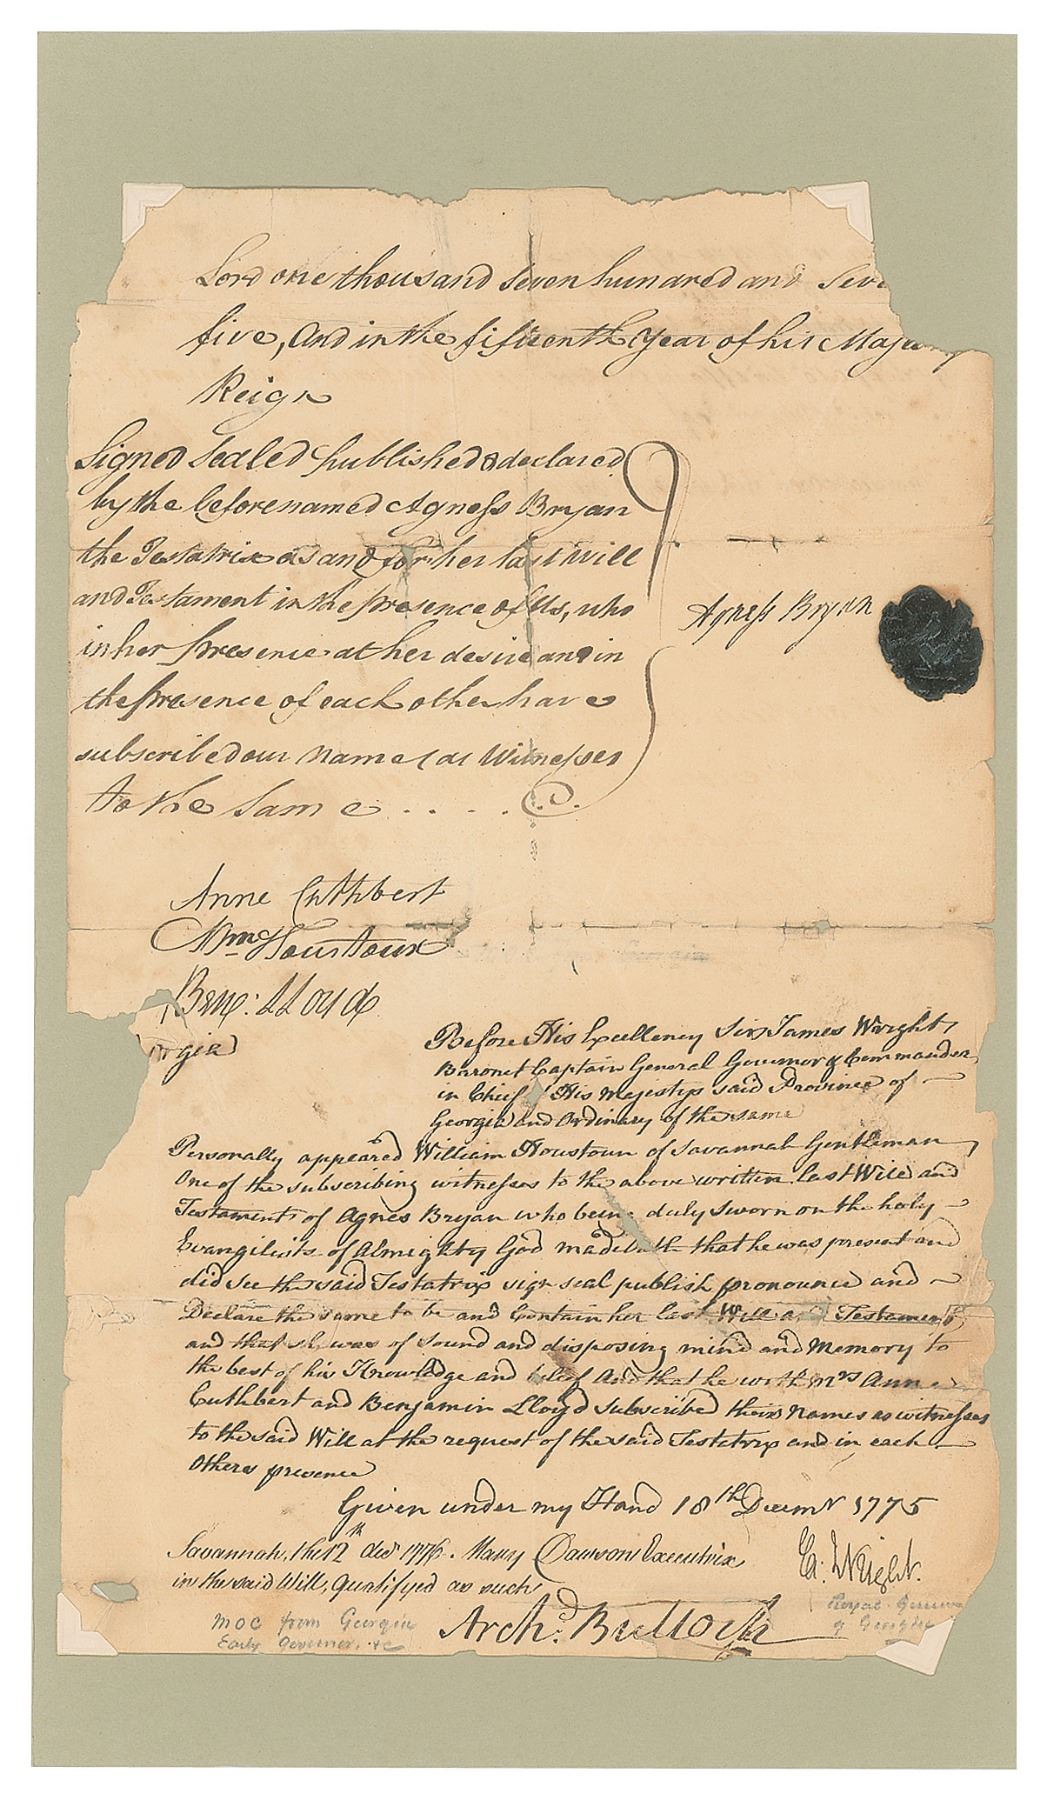 Lord one thousand Seven hundred and Seve
five, And in the fifteenth Year of his Majesty
Reign
Signed Sealed published & declared
by the beforenamed Agness Bryan
the Testatrix as and for her last Will
and Testament in the presence of Us, who
in her presence at her desire and in
the presence of each other have
subscribed our Names as Witnesses
to the Same . . . .
Agness Bryan
Anne Cuthbert
Wm Houstoun
Benj: LLoyd
orgia
Before His Excellency Sir James Wright
Baronet Captain General Governor & Commander
in Chief of His Majestys said Province of
Georgia and Ordinary of the same
Personally appeared William Houstoun of Savannah Gentleman
One of the subscribing witnesses to the above written Last Will and
Testament of Agnes Bryan who being duly sworn on the holy
Evangilists of Almighty God made Oath that he was present and
did see the said Testatrix sign seal publish pronounce and
Declare the same to be and Contain her Last Will and Testament
and that she was of sound and disposing mind and Memory to
the best of his Knowledge and belief And that he with Mrs Anne
Cuthbert and Benjamin Lloyd Subscribed their Names as witnesses
to the said Will at the request of the said Testatrix and in each
Others presence
Given under my Hand 18th Decemr 1775
Savannah, the 12th decr 1776. Mary Dawson Executrix
in the said Will, Qualifyed as such
Ja: Wright.
Archd: Bulloch
Royal Governor
of Georgia
MOC from Georgia
Early Governor, &c